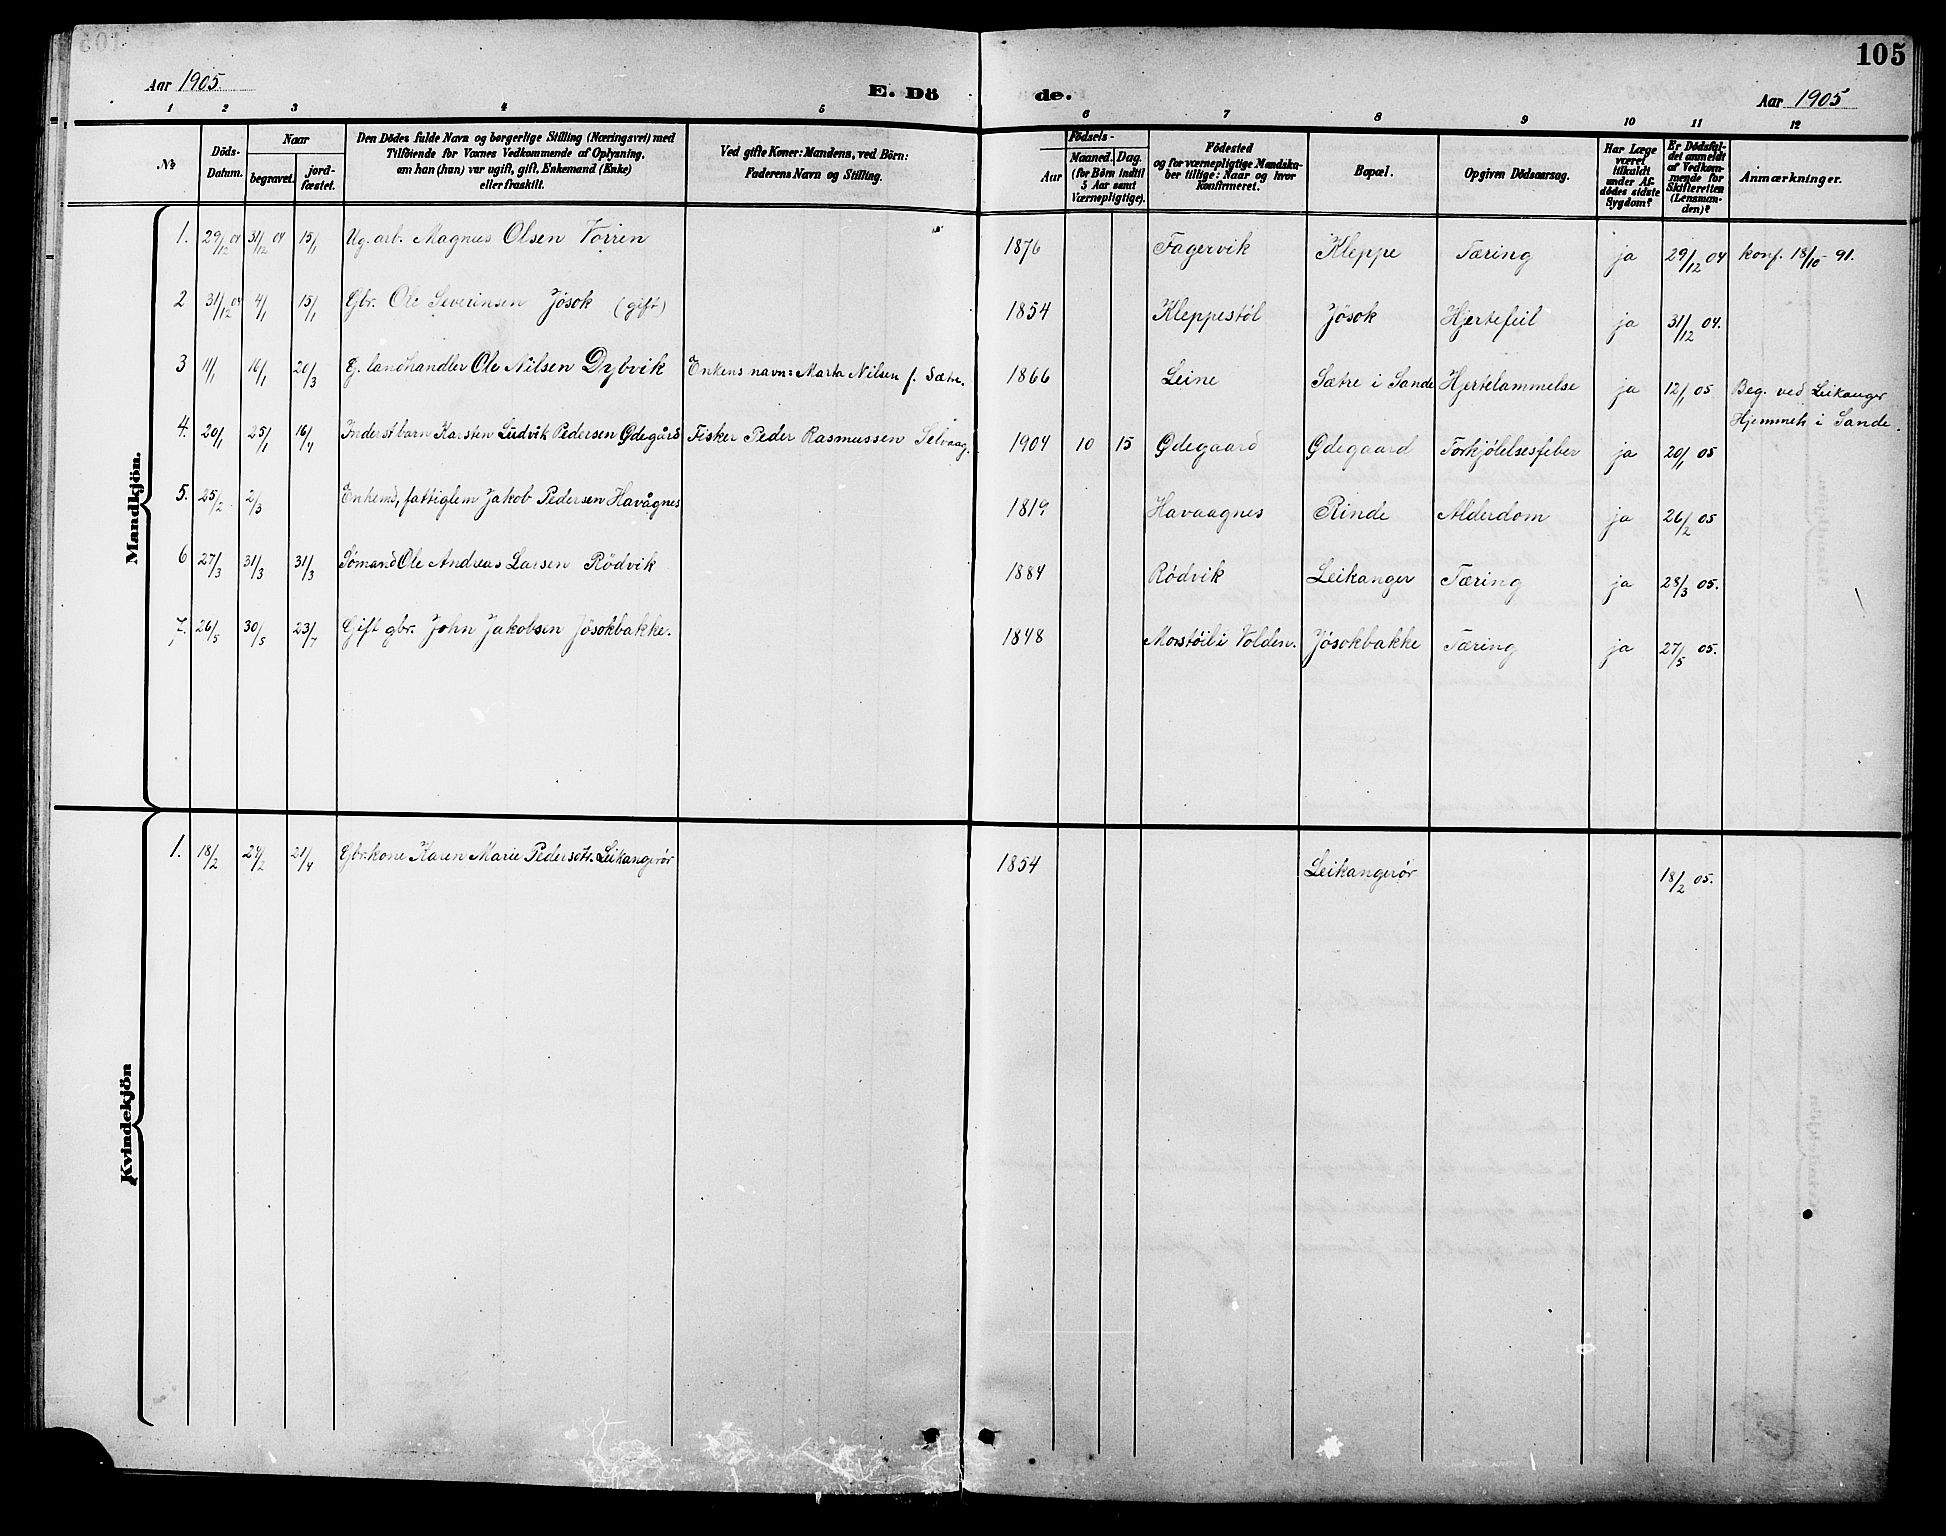 105
Aar 1905
E. Dö de.
Aar 1905
1 2 3 4 5 6 7 8 9 10 11 12
№
Döds-Datum.
Naar
begravet.
jord-fæstet.
Den Dödes fulde Navn og borgerlige Stilling (Næringsvei) med
Tilföiende for Værnes Vedkommende af Oplysning,
om han (hun) var ugift, gift, Enkemand (Enke)
eller fraskilt.
Ved gifte Koner: Mandens, ved Börn:
Faderens Navn og Stilling.
Födsels-
Aar
Maaned. Dag.
(for Börn indtil
5 Aar samt
Værnepligtige).
Födested
og for værnepligtige Mandska-
ber tillige: Naar og hvor
konfirmeret.
Bopæl.
Opgiven Dödsaarsag.
Har Læge
været
tilkaldt
under Af-
dödes sidste
Sygdom?
Er Dödsfal-
det anmeldt
af Vedkom-
mende for
Skifteretten
(Lensman-
den)?
Anmærkninger.
Mandkjön.
1. 29/12 04 31/12 04 15/1 Ug. arb. Magnus Olsen Vorren 1876 Fagervik Kleppe Tæring ja 29/12 04 konf. 18/10 - 91.
2 31/12 04 4/1 15/1 Gbr. Ole Severinsen Jösok (gift) 1854 Kleppestöl Jösok Hjertefeil ja 31/12 04.
3 11/1 16/1 20/3 G. landhandler Ole Nilsen Dybvik Enkens navn: Marta Nilsen f. Sætre. 1866 Leine Sætre i Sande Hjertelammelse ja 12/1 05 Beg. ved Leikanger
Hjemmeh i Sande.
4. 20/1 25/1 16/4 Inderstbarn Karsten Ludvik Pedersen Ødegård Fisker Peder Rasmussen Selvaag. 1904 10 15 Ødegaard Ødegaard Forkjölelsesfeber ja 20/1 05
5. 25/2 2/3 Enkemd, fattiglem Jakob Pedersen Havågnes 1819 Havaagnes Rinde Alderdom ja 26/2 05
6 27/3 31/3 31/3 Sømand Ole Andreas Larsen Rödvik 1884 Rödvik Leikanger Tæring ja 28/3 05.
7. 26/5 30/5 23/7 Gift gbr. John Jakobsen Jösokbakke. 1848 Morstöil i Volden. Jösokbakke Tæring ja 27/5 05.
Kvindekjön
1. 18/2 24/2 21/4 Gbr.kone Karen Marie Pedersdtr. Leikangerör 1854 Leikangerör 18/2 05.